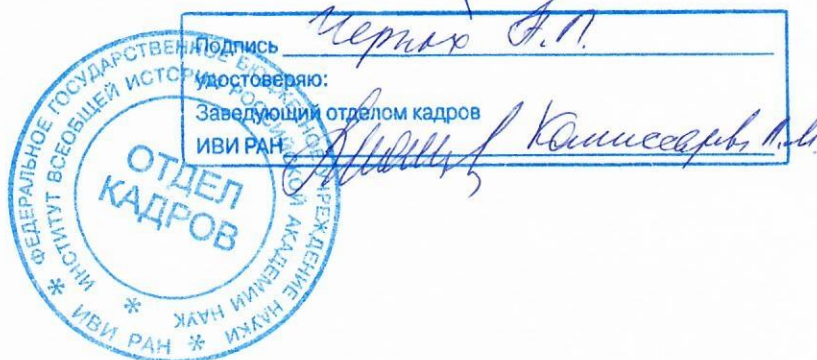 Подпись Черных А.П.
удостоверяю:
Заведующий отделом кадров
ИВИ РАН Комиссарова
ФЕДЕРАЛЬНОЕ ГОСУДАРСТВЕННОЕ БЮДЖЕТНОЕ УЧРЕЖДЕНИЕ НАУКИ
ИНСТИТУТ ВСЕОБЩЕЙ ИСТОРИИ РОССИЙСКОЙ АКАДЕМИИ НАУК
ОТДЕЛ
КАДРОВ
* ИВИ РАН *